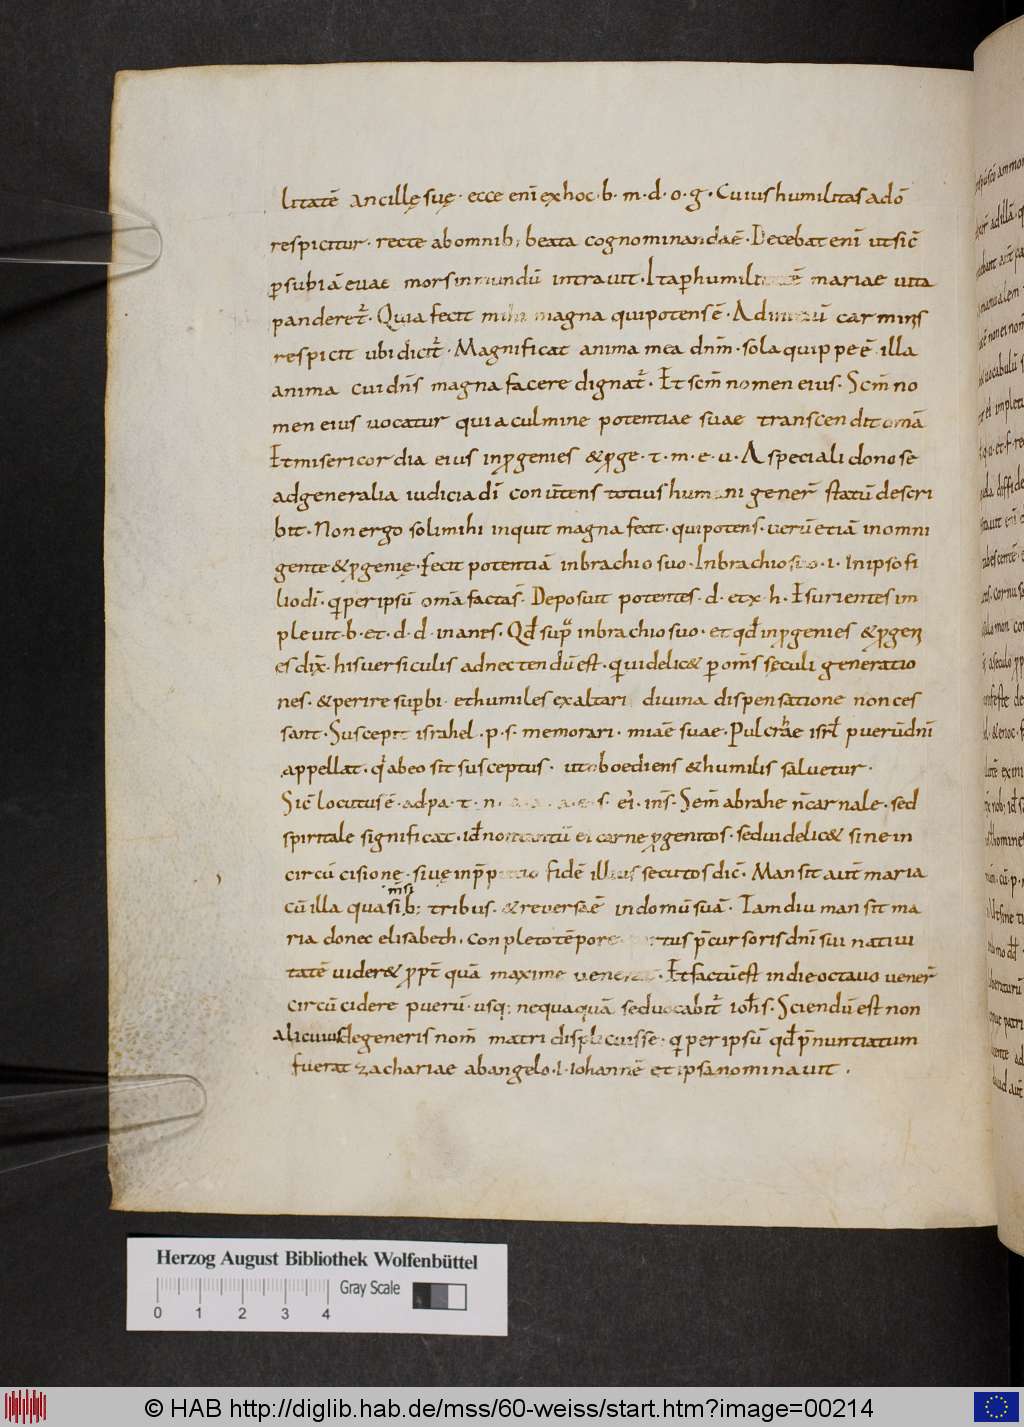 litatē ancillę suę · ecce eni̅ ex hoc · b · m · d · o · g · Cuius humilitas a dō
respicitur · recte ab omnib; beata cognominanda ē · Decebat eni̅ ut sic̅
ꝑ subiā euae mors in mundū intrauit · Ita ꝑ humilitatē mariae uita
panderet̅ · Quia fecit mihi magna qui potens ē · Ad initiū carminis
respicit ubi dicit̅ · Magnificat anima mea dn̅m · sola quippe ē illa
anima cui dn̅s magna facere dignat̅ · Et sc̅m nomen eius · Sc̅m no
men eius uocatur quia culmine potentiae suae transcendit om̅a
Et misericordia eius in ꝓgenies & ꝓge · t · m · e · u · A speciali dono se
ad generalia iudicia di̅ conu̅tens totius humani gener̅ statū descri
bit · Non ergo soli mihi inquit magna fecit · qui potens · uerū etiā in omni
gente & ꝓgenię · Fecit potentiā in brachio suo · In brachio suo · i · In ipso fi
lio di̅ · q per ipsū om̅a facta s̅ · Deposuit potentes · d · et x · h · Esurientes im
pleuit · b · et · d · d · inanes · Qd̅ sup̅ in brachio suo · et qd̅ in ꝓgenies & ꝓgen
es dix̅ · his uersiculis adnectendū est · qui uidelic& ꝑ om̅s sęculi generatio
nes · & perire suꝑbi · et humiles exaltari diuina dispensatione non ces
sant · Suscepit israhel · p · s · memorari · mi̅ae suae · Pulcrae isrl̅ puerū dni̅
appellat · q ab eo sit susceptus · ut oboediens & humilis saluetur ·
Sic̅ locutus ē · ad pa · t · n · a · a · e · s · ei̅ · in s̅ · Sem̅ abrahe n̅ carnale · sed
spiritale significat · id̅ non tantū ei carne ꝓgenitos · sed uidelic& siue in
circū cisionę · siuę in p̅putio fidē illius secutos dic̅ · Mansit aut̅ maria
m̅si
cū illa quasi b; tribus · & reuersa ē in domū suā · Tam diu mansit ma
ria donec elisabeth · conpleto tēpore partus p̅cursoris dn̅i sui natiui
tatē uider& ꝓpt̅ quā maxime uenerat · Et factū est in die octauo uener̅
circū cidere puerū · usq; nequaquā sed uocabit̅ ioh̅s · Sciendū est non
alicuius degeneris nom̅ matri displicuisse · q per ipsū qd̅ p̅nuntiatum
fuerat zachariae ab angelo · i · Iohannē et ipsa nominauit ·
Herzog August Bibliothek Wolfenbüttel
Gray Scale
0 1 2 3 4
© HAB http://diglib.hab.de/mss/60-weiss/start.htm?image=00214